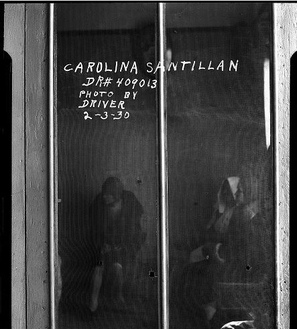 CAROLINA SANTILLAN
DR# 409013
PHOTO BY
DRIVER
2-3-30